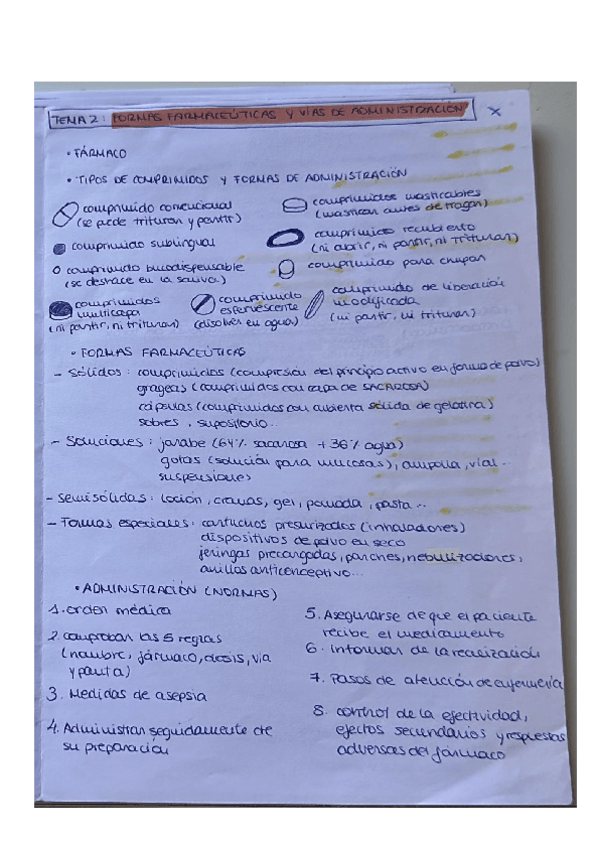 TEMA 2: FORMAS FARMACEÚTICAS Y VÍAS DE ADMINISTRACIÓN X
• FÁRMACO
• TIPOS DE COMPRIMIDOS Y FORMAS DE ADMINISTRACIÓN
comprimido convencional
(se puede triturar y partir)
comprimidos masticables
(mastican antes de tragar)
comprimido sublingual
comprimido recubierto
(ni abrir, ni partir, ni triturar)
comprimido bucodispensable
(se deshace en la saliva)
comprimido para chupar
comprimidos
multicapa
(ni partir, ni triturar)
comprimido
efervescente
(disolver en agua)
comprimido de liberación
modificada
(ni partir, ni triturar)
• FORMAS FARMACEÚTICAS
- Sólidos: comprimidos (compresión del principio activo en forma de polvo)
grageas (comprimidos con capa de SACAROSA)
cápsulas (comprimidos con cubierta sólida de gelatina)
sobres, supositorio...
- Soluciones: jarabe (64% sacarosa + 36% agua)
gotas (solución para mucosas), ampolla, vial...
suspensiones
- Semisólidas: loción, cremas, gel, pomada, pasta...
- Formas especiales: cartuchos presurizados (inhaladores)
dispositivos de polvo en seco
jeringas precargadas, parches, nebulizadores,
anillos anticonceptivo...
• ADMINISTRACIÓN (NORMAS)
1. orden médica
2. comprobar las 5 reglas
(nombre, fármaco, dosis, vía
y pauta)
3. Medidas de asepsia
4. Administrar seguidamente de
su preparación
5. Asegurarse de que el paciente
recibe el medicamento
6. Informar de la realización
7. Pasos de atención de enfermería
8. control de la efectividad,
efectos secundarios y respuestas
adversas del fármaco